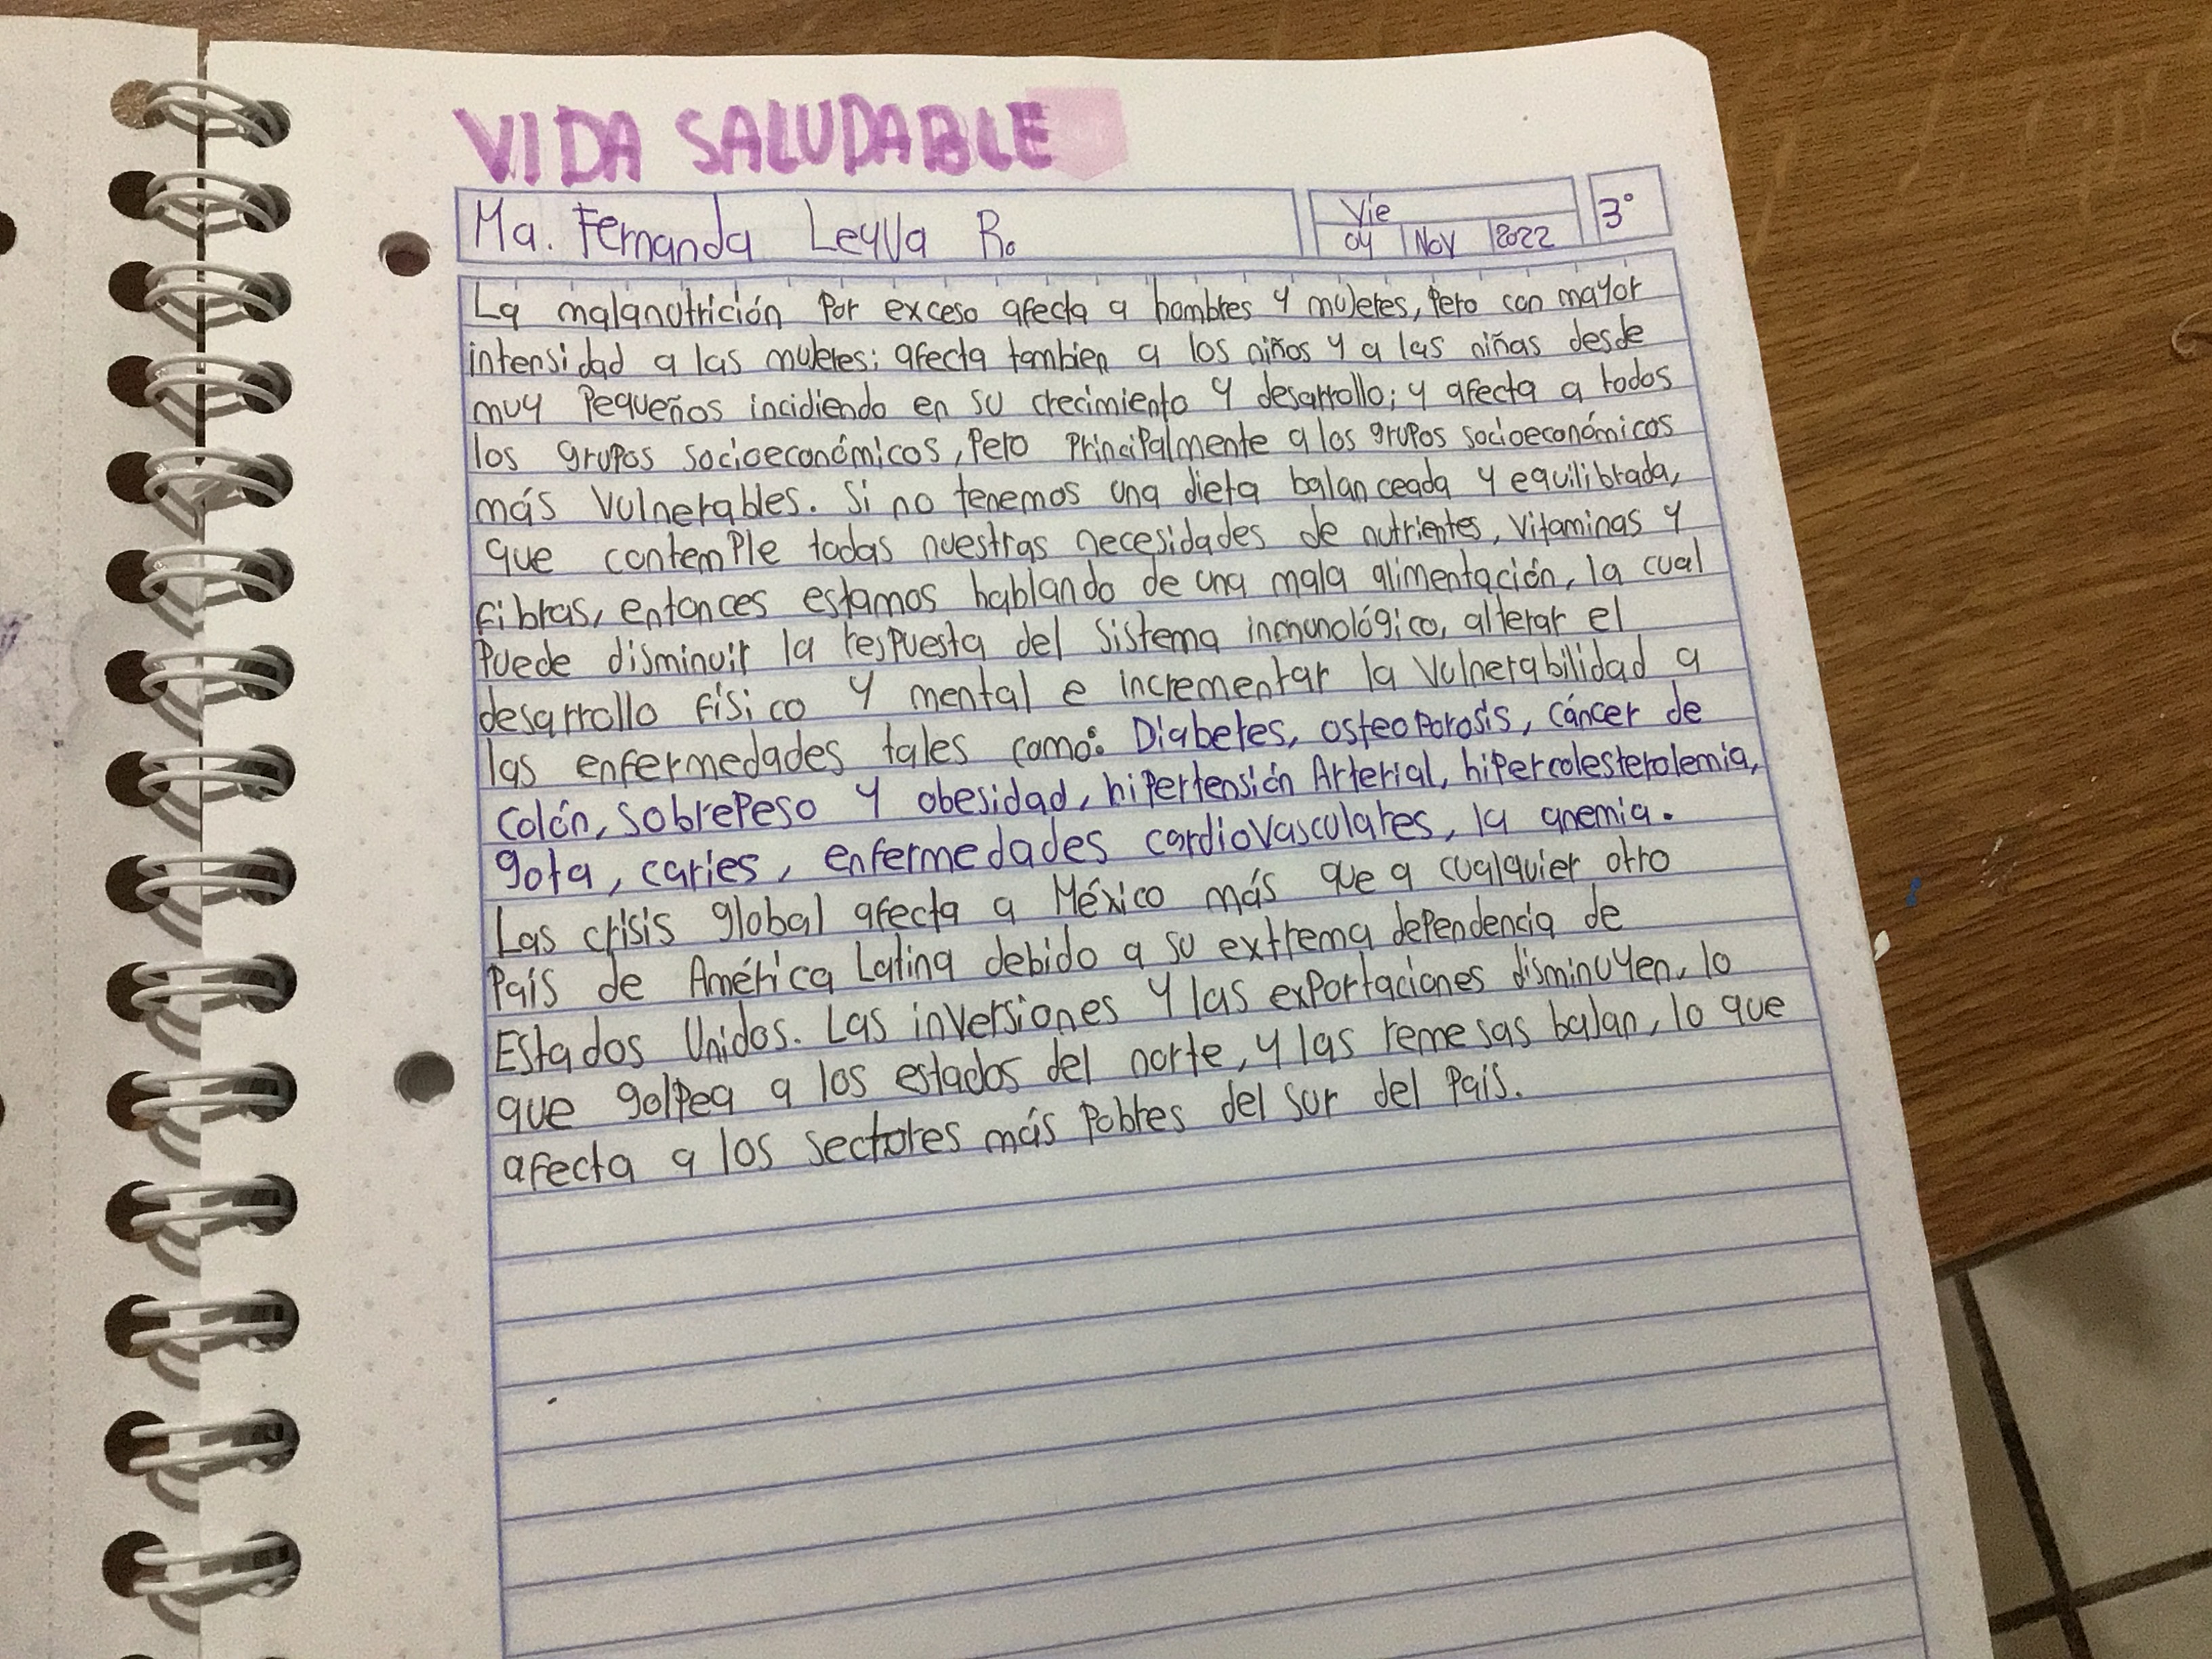 VIDA SALUDABLE
Ma. Fernanda Leyva R.
Vie
04 Nov 2022
3°
La malanutrición por exceso afecta a hombres y mujeres, pero con mayor
intensidad a las mujeres; afecta tambien a los niños y a las niñas desde
muy pequeños incidiendo en su crecimiento y desarrollo; y afecta a todos
los grupos socioeconómicos, pero principalmente a los grupos socioeconómicos
más vulnerables. Si no tenemos una dieta balanceada y equilibrada,
que contemple todas nuestras necesidades de nutrientes, vitaminas y
fibras, entonces estamos hablando de una mala alimentación, la cual
puede disminuir la respuesta del sistema inmunológico, alterar el
desarrollo físico y mental e incrementar la vulnerabilidad a
las enfermedades tales como: Diabetes, osteoporosis, cáncer de
colón, sobrepeso y obesidad, hipertensión Arterial, hipercolesterolemia,
gota, caries, enfermedades cardiovasculares, la anemia.
Las crisis global afecta a México más que a cualquier otro
país de América Latina debido a su extrema dependencia de
Estados Unidos. Las inversiones y las exportaciones disminuyen, lo
que golpea a los estados del norte, y las remesas bajan, lo que
afecta a los sectores más pobres del sur del país.